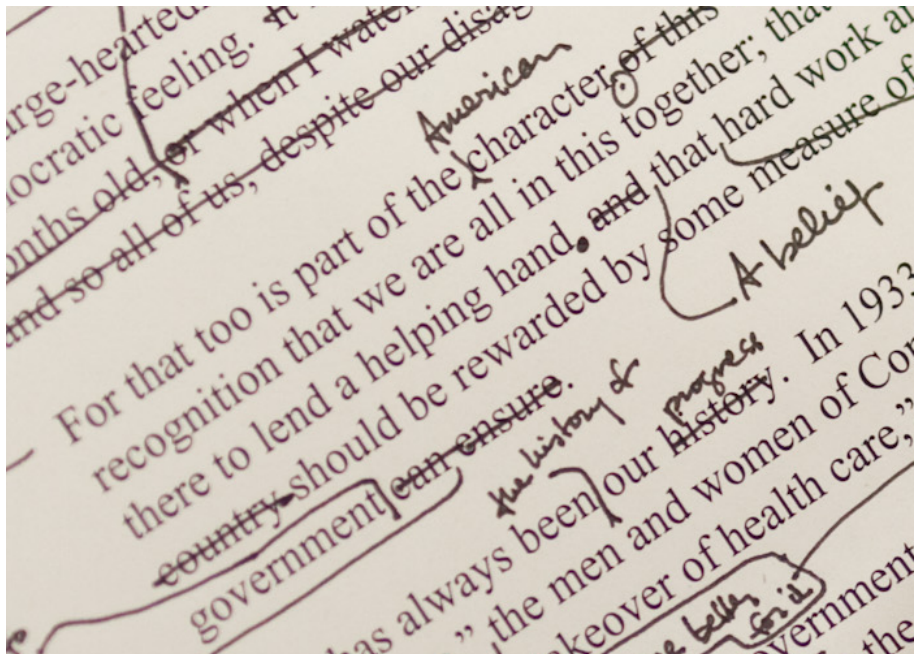 large-hearted
ocratic feeling. It
onths old, or when I watch
and so all of us, despite our disag
American
For that too is part of the character of this
recognition that we are all in this together; that
there to lend a helping hand. and that hard work a
A belief
country should be rewarded by some measure of
government can ensure.
the history of progress
has always been our history. In 1933
," the men and women of Con
keover of health care,"
better
for it
overnment
the